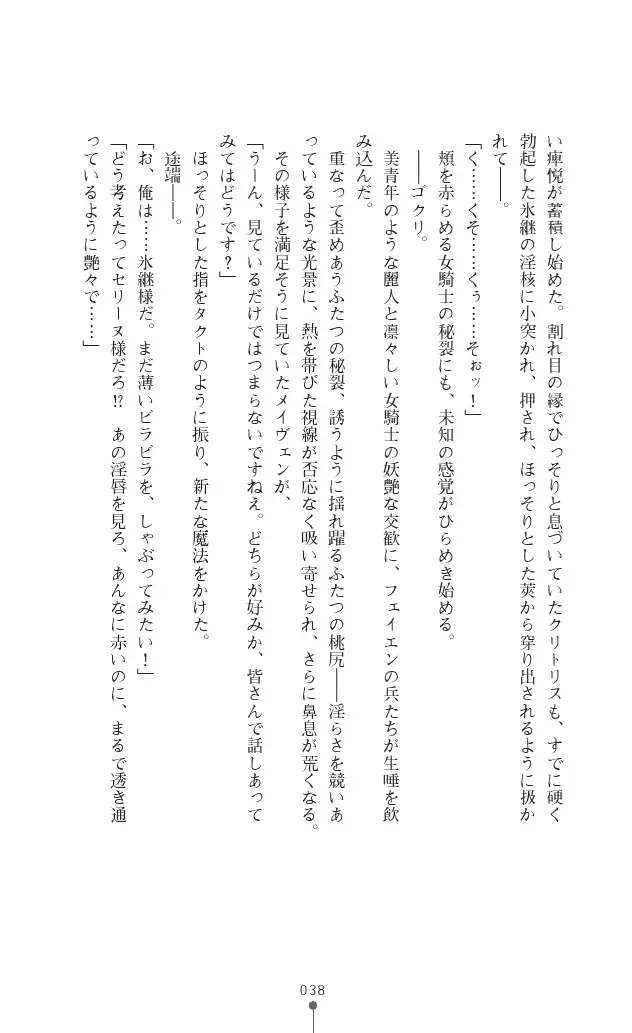 い痺悦が蓄積し始めた。割れ目の縁でひっそりと息づいていたクリトリスも、すでに硬く
勃起した氷継の淫核に小突かれ、押され、ほっそりとした莢から穿り出されるように扱か
れて――。
「く……くそ……くぅ……そぉッ！」
頬を赤らめる女騎士の秘裂にも、未知の感覚がひらめき始める。
――ゴクリ。
美青年のような麗人と凛々しい女騎士の妖艶な交歓に、フェイエンの兵たちが生唾を飲
み込んだ。
重なって歪めあうふたつの秘裂、誘うように揺れ躍るふたつの桃尻――淫らさを競いあ
っているような光景に、熱を帯びた視線が否応なく吸い寄せられ、さらに鼻息が荒くなる。
その様子を満足そうに見ていたメイヴェンが、
「うーん、見ているだけではつまらないですねえ。どちらが好みか、皆さんで話しあって
みてはどうです？」
ほっそりとした指をタクトのように振り、新たな魔法をかけた。
途端――。
「お、俺は……氷継様だ。まだ薄いビラビラを、しゃぶってみたい！」
「どう考えたってセリーヌ様だろ⁉　あの淫唇を見ろ、あんなに赤いのに、まるで透き通
っているように艶々で……」
038